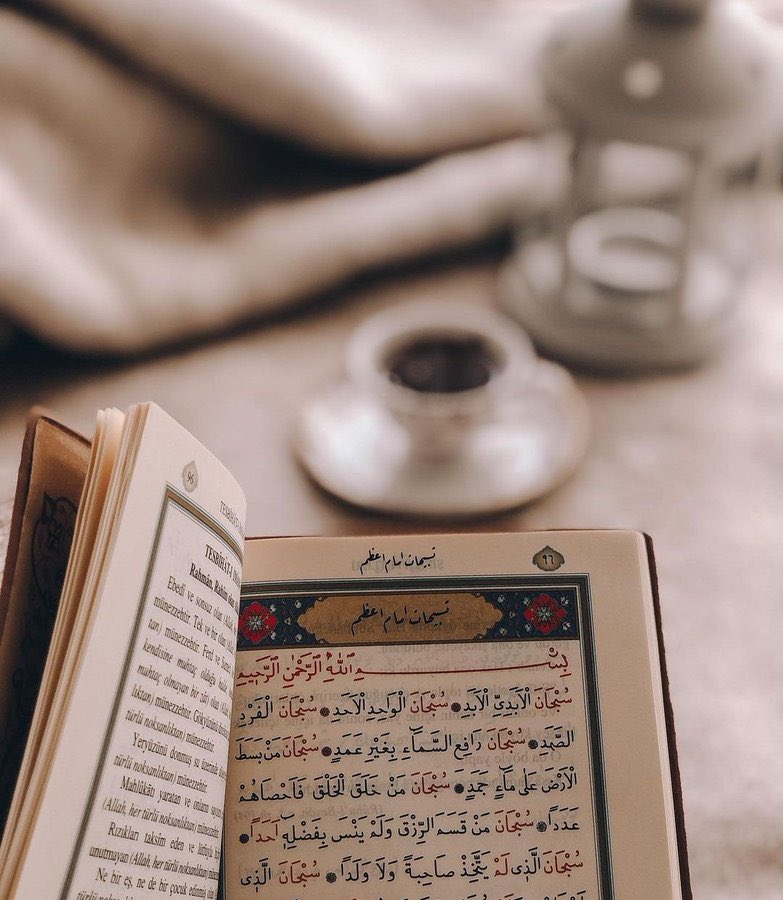 96
TESBİHÂT-I
TESBİHÂT-I İMAM
Rahmân, Rahîm olan
Ebedî ve sonsuz olan (Allah,
münezzehtir. Tek ve bir olan
tan) münezzehtir. Ferd ve
kendisine muhtaç olduğu halde
muhtaç olmayan bir zât) olan (Allah,
lıktan) münezzehtir. Gökyüzünü
türlü noksanlıktan) münezzehtir.
Yeryüzünü donmuş su üzerinde
türlü noksanlıktan) münezzehtir.
Mahlûkâtı yaratan ve onların
(Allah, her türlü noksanlıktan) münezzehtir.
Rızıkları taksîm eden ve
unutmayan (Allah, her türlü noksanlıktan)
Ne bir eş, ne de bir çocuk edinmiş
türlü noksanlıktan)
تسبيحات امام اعظم
٩٦
تسبيحات امام اعظم
بِسْمِ اللّٰهِ الرَّحْمٰنِ الرَّحِيمِ
سُبْحَانَ الْاَبَدِيِّ الْاَبَدِ سُبْحَانَ الْوَاحِدِ الْاَحَدِ سُبْحَانَ الْفَرْدِ
الصَّمَدِ سُبْحَانَ رَافِعِ السَّمَاءِ بِغَيْرِ عَمَدٍ سُبْحَانَ مَنْ بَسَطَ
الْاَرْضَ عَلٰى مَاءٍ جَمَدٍ سُبْحَانَ مَنْ خَلَقَ الْخَلْقَ فَاَحْصَاهُمْ
عَدَدًا سُبْحَانَ مَنْ قَسَمَ الرِّزْقَ وَلَمْ يَنْسَ بِفَضْلِهِ اَحَدًا
سُبْحَانَ الَّذِي لَمْ يَتَّخِذْ صَاحِبَةً وَلَا وَلَدًا سُبْحَانَ الَّذِي